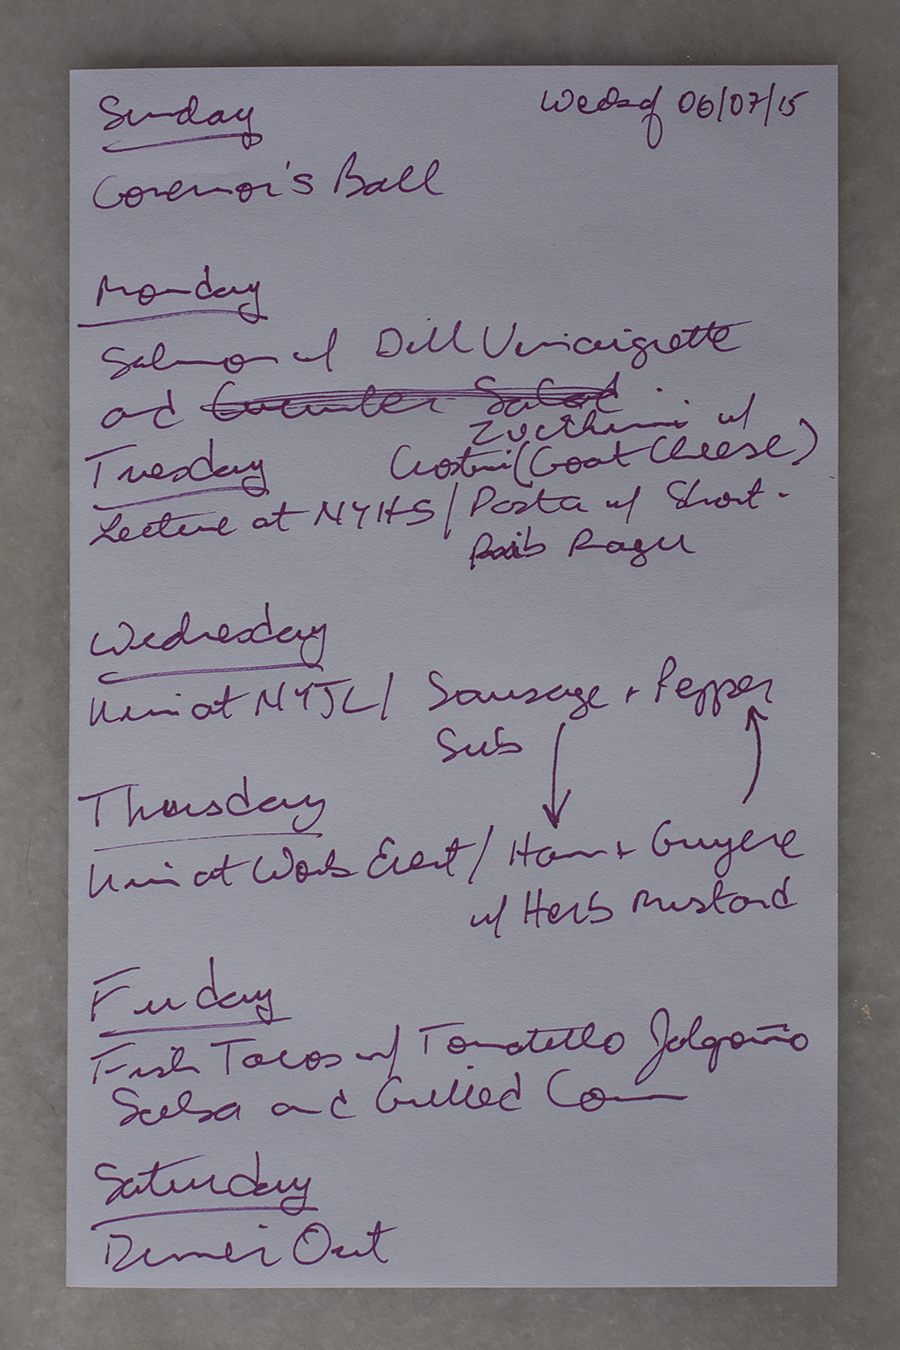 Sunday
Week of 06/07/15
Governor's Ball
Monday
Salmon w/ Dill Vinaigrette
and Cucumber Salad
Zucchini w/
Tuesday
Crostini (Goat Cheese)
Lecture at NYHS / Pasta w/ Short-
Rib Ragu
Wednesday
at NYJL / Sausage + Pepper
Sub
Thursday
at Work Event / Ham + Gruyere
w/ Herb Mustard
Friday
Fish Tacos w/ Tomatillo Jalapeño
Salsa and Grilled Corn
Saturday
Dinner Out